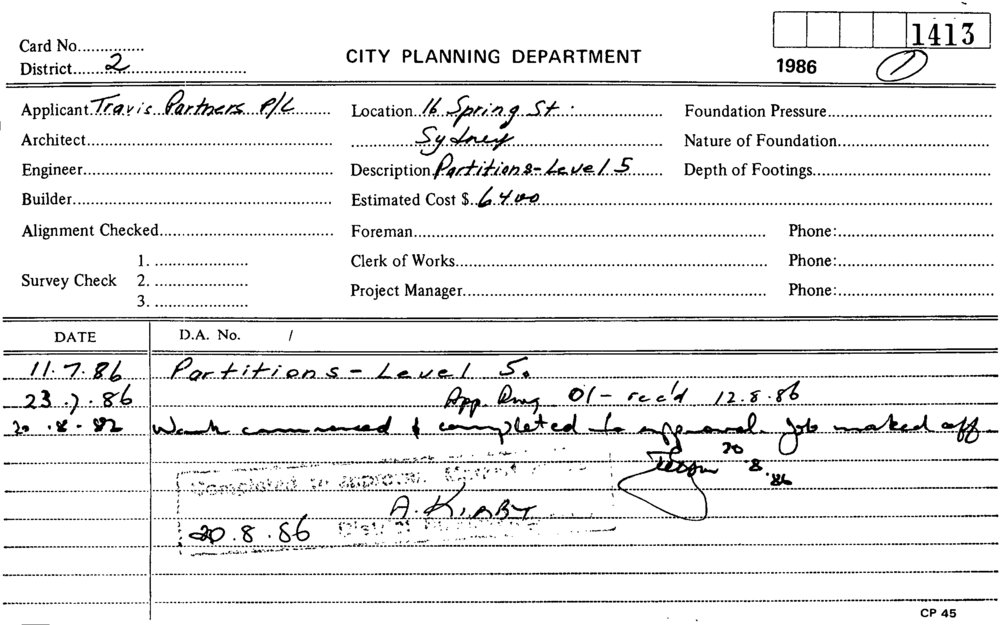 1413
Card No...............
District....2.............................
CITY PLANNING DEPARTMENT
1986 1
Applicant Travis Partners P/L Location 16 Spring St. Foundation Pressure
Architect Sydney Nature of Foundation
Engineer Description Partitions-Level 5 Depth of Footings
Builder Estimated Cost $ 6400
Alignment Checked Foreman Phone:
1. Clerk of Works Phone:
Survey Check 2.
Project Manager Phone:
3.
DATE D.A. No. /
11.7.86 Partitions - Level 5.
23.7.86 App. Dwg 01 - rec'd 12.8.86
20.8.82 Work commenced & completed to approval. Job marked off
20.8.86
Completed to approval.
A. KIRBY
20.8.86 District
CP 45